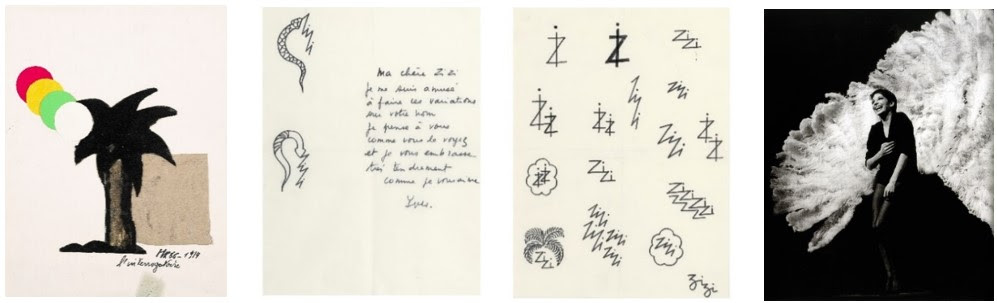 l'interrogatoire
Zizi
Zizi
Ma chère Zizi
je me suis amusé
à faire ces variations
sur votre nom
je pense à vous
comme vous le voyez
et je vous embrasse
très tendrement
comme je vous aime
Yves.
Zizi
Zizi
Zizi
Zizi
Zizi
Zizi
Zizi
Zizi
Zizi
Zizi
Zizi
Zizi
Zizi
Zizi